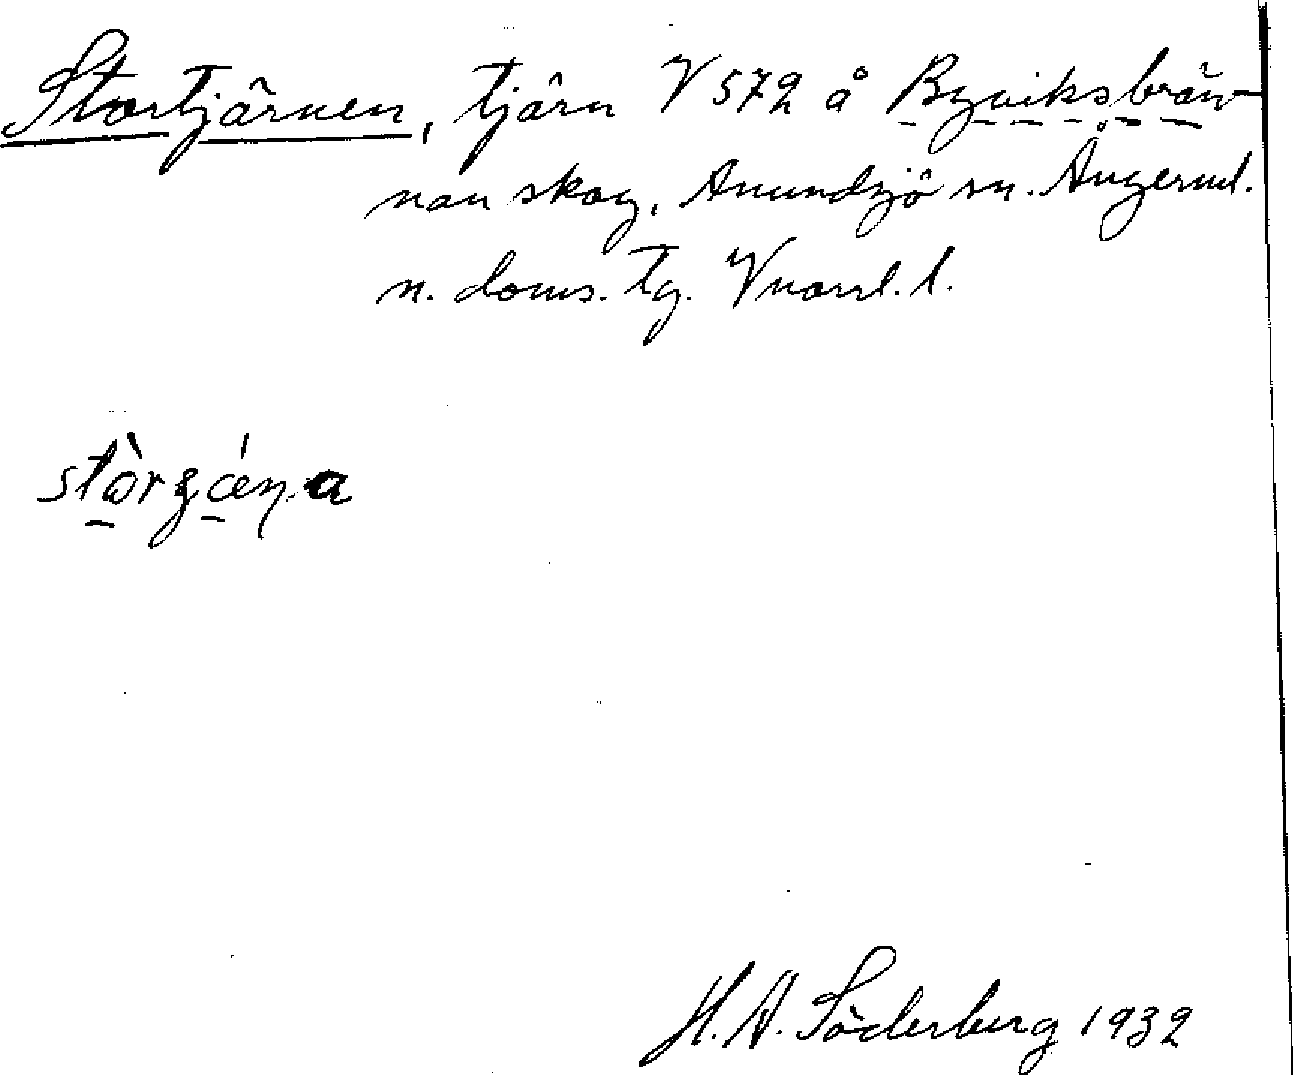 Stortjärnen, tjärn V 572 å Byviksbrän-
nan skog, Anundsjö sn. Ångerml.
n. doms. tg. Vnorrl. l.
H. A. Söderberg 1932